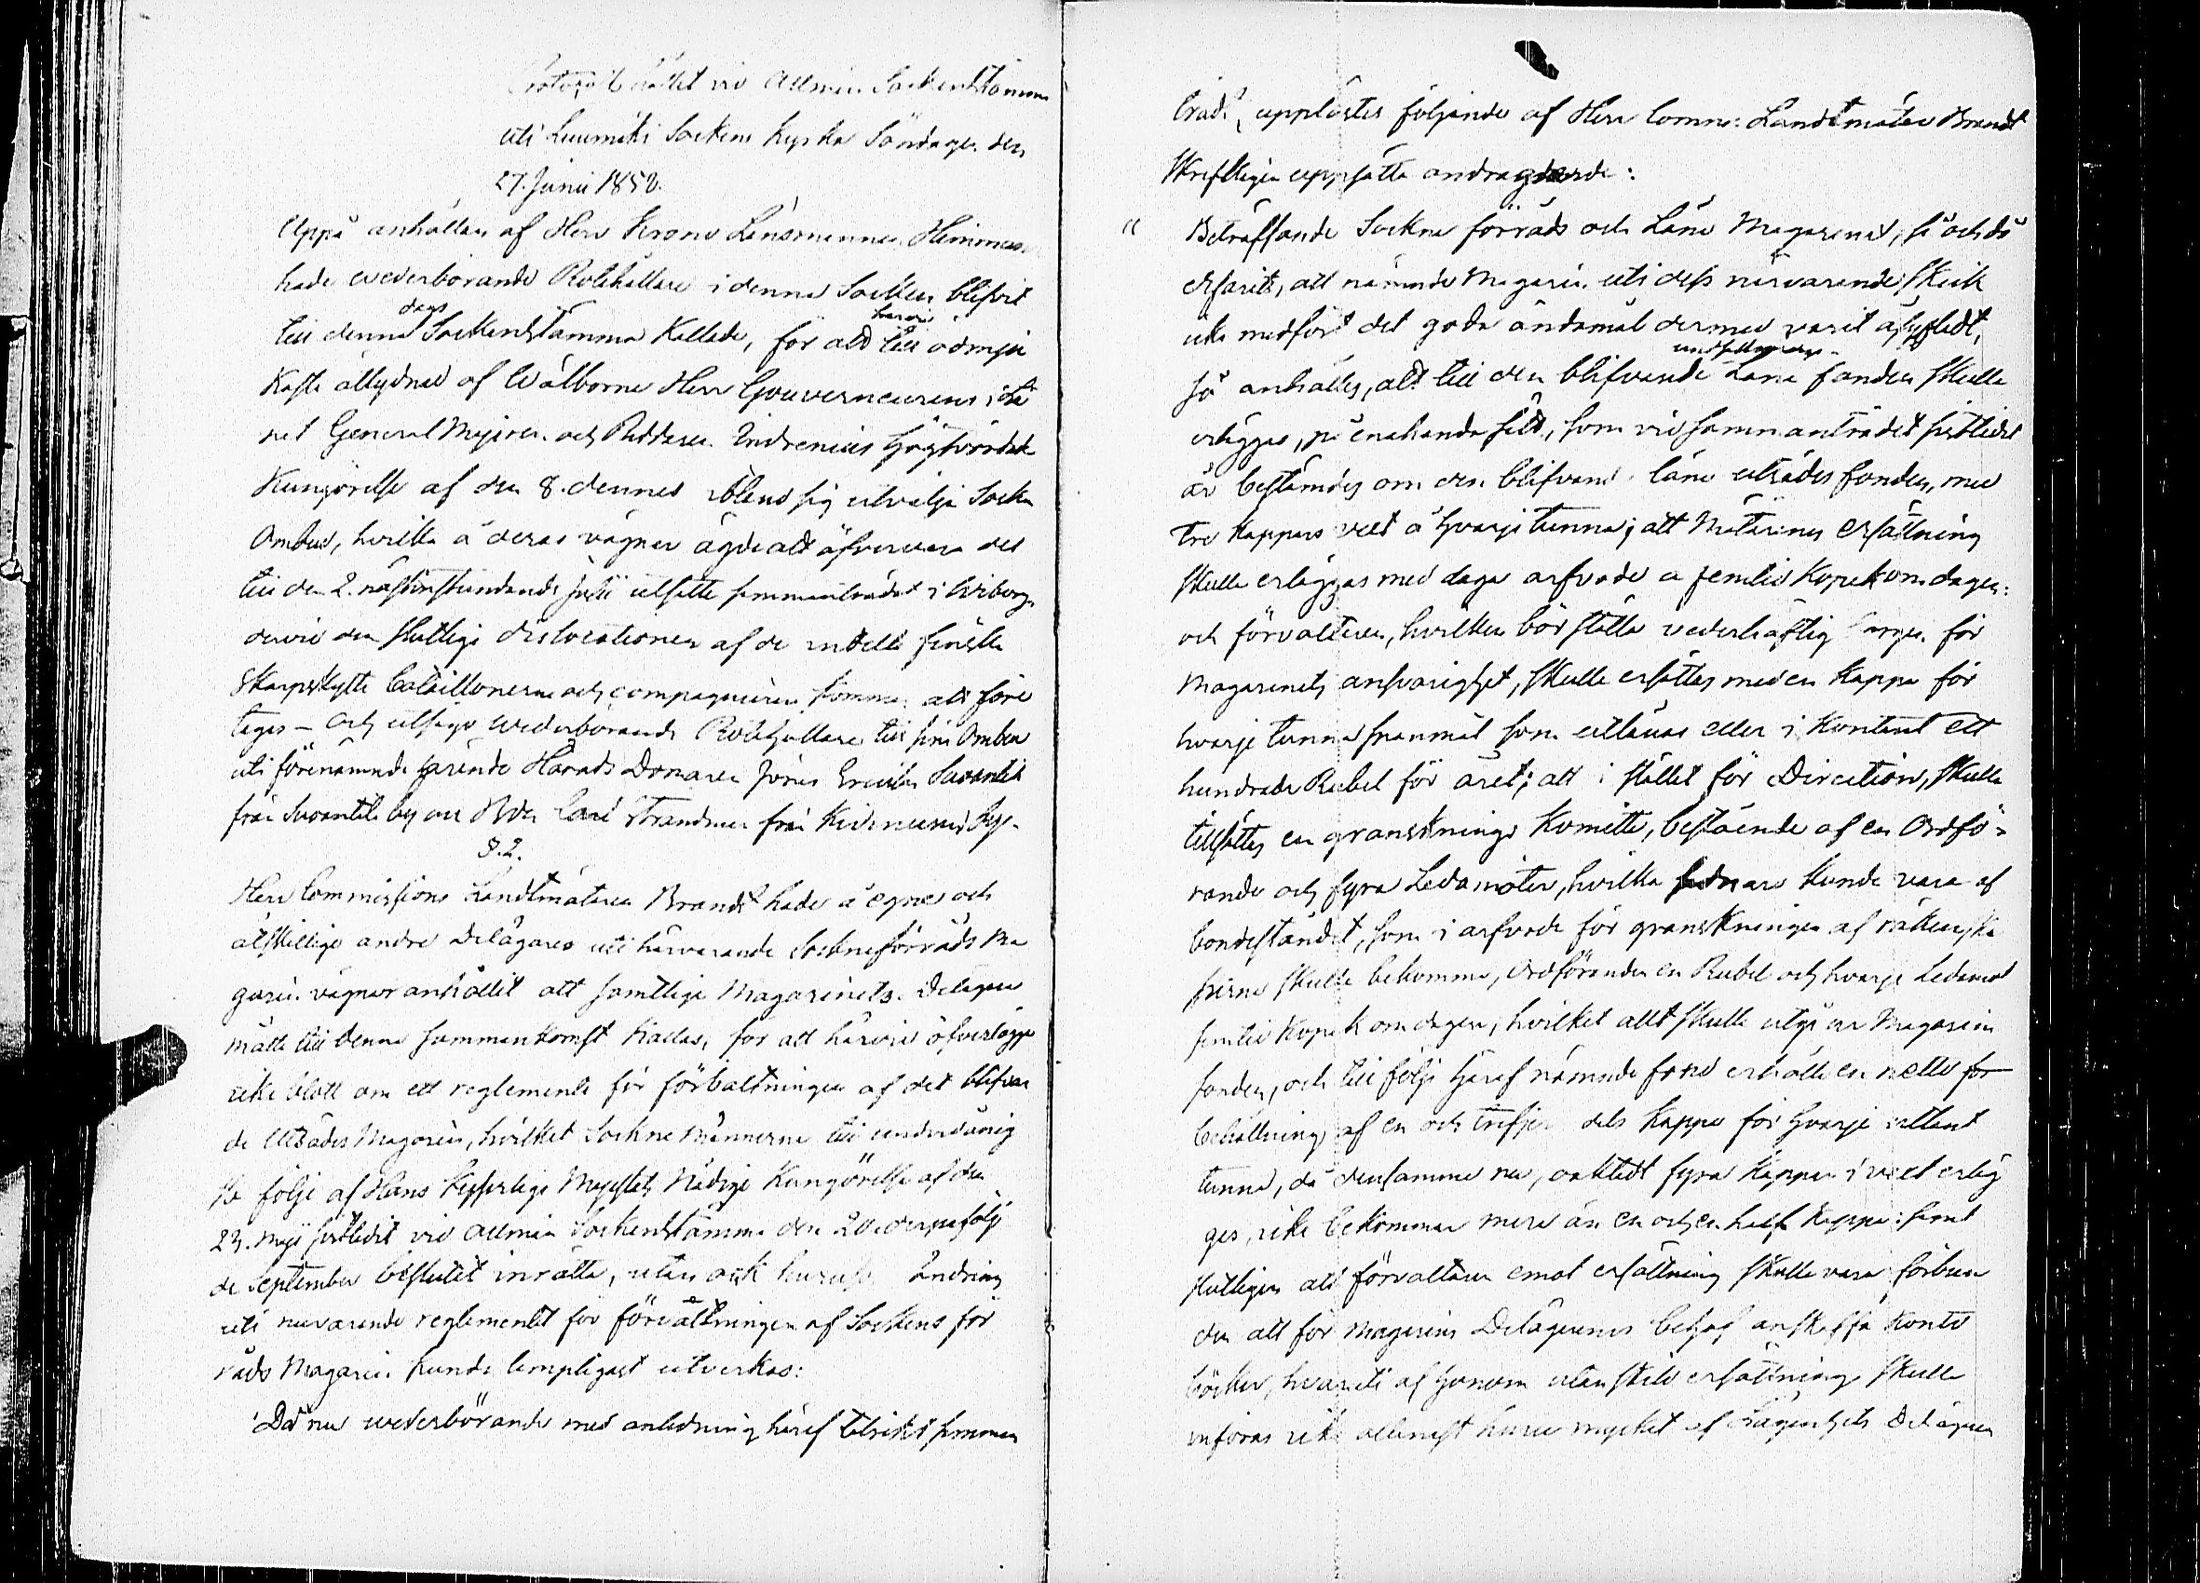 Protocoll hållet vid Allmän Sockenstämma
uti Luumäki Sockens Kyrka Söndagen den
27. Junii 1852.
Uppå anhållan af Herr Krono Länsmannen Himma
hade wederbörande Rotehållare i denna Socken blifvit
till denna dags Sockenstämma Kallade, för att härvid till ödmju
kaste åtlydnad af Wälborne Herr Gouverneurens i Lä
net General Majoren och Riddaren Indrenius högtvördade
Kungörelse af den 8. dennes ibland sig utvälja Sockne
Ombud, hvilka å deras vägnar ägde att öfvervara det
till den 2. nästinstundande Julii utsatte sammanträdet i Wiborg
dervid den slutliga dislocationen af de indelta finska
Skarpskytte bataillonerne och compagnierne komma att före
tagas – och utsågo wederbörande Rotehållare till sine Ombud
uti förenämnde ärende Härads Domaren Jöns Ericksson Suvantila
från Suvantila by och Carl Strandman från Kivenemi by.
§. 2.
Herr Commissions Landtmätaren Brandt hade å egne och
åtskillige andre Delägares uti härvarande Sockneförråds Ma
gasin vägnar anhållit att samtlige Magasinets Delägare
måtte till denna sammankomst Kallas, för att härvid öfverlägga
icke blott om ett reglemente för förvaltningen af det blifvan
de Utsädes Magasin, hvilket Socknemännerne till underdånig
ste följe af Hans Kejserliga Majestäts Nådiga Kungörelse af den
23. Maji sistledit vid Allmän Sockenstämma den 20. derpåföljan
de September beslutet inrätta, utan ock huruledes ändring
uti nuvarande reglementet för förvaltningen af Sockens för
råds Magasin kunde lempligast utverkas:
Då nu wederbörande med anledning häraf talrikt samman
trädt, upplästes följande af Herr Comms: Landtmätar Brandt
skriftligen uppsatta andragande:
" Beträffande Sockne förråds och Låne Magasinet, så och då
erfarits, att nämnde Magasin uti dess nuvarande skick
icke medfört det goda ändamål dermed varit åsyftadt,
så anhålles, att till den blifvande undsättnings Låne fonden skulle
erläggas, på enahanda sätt, som vid sammanträdet sistledit
år bestämdes om den blifvande låne utsädes fonden, med
Tre Kappars vext å hvarje tunna; att Mätarenes Ersättning
skulle erläggas med dags arfvode a femtio Kopek om dagen:
och förvaltaren, hvilken bör ställa vederhäftig borgen för
Magasinets ansvarighet, skulle ersättas med en Kappa för
hvarje tunna spanmål som utlånas eller i Kontant ett
hundrade Rubel för året; att i stället för Direction, skulle
tillsättas en gransknings Komitté, bestående af en Ordfö-
rande och fyra Ledamöter, hvilka sednare kunde vara af
bondeståndet, som i arfvode för granskningen af räkenska
perne skulle bekomma, Ordföranden en Rubel och hvarje Ledamot
femtio Kopek om dagen, hvilket allt skulle utgå ur Magasin
fonden, och till följe häraf nämnde fond erhålla en netto för
behållning af en och tredje dels Kappa för hvarje utlånt
tunna, då densamme nu, oaktadt fyra Kappar i vext erläg
ges, icke bekommer mera än en och en half Kappa: samt
slutligen att förvaltaren emot ersättning skulle vara förbun
den att för Magasins Delägarenes behof anskaffa Konto
böcker, hvaruti af honom utan skild ersättning skulle
införas icke allenast huru mycket af Delägaren